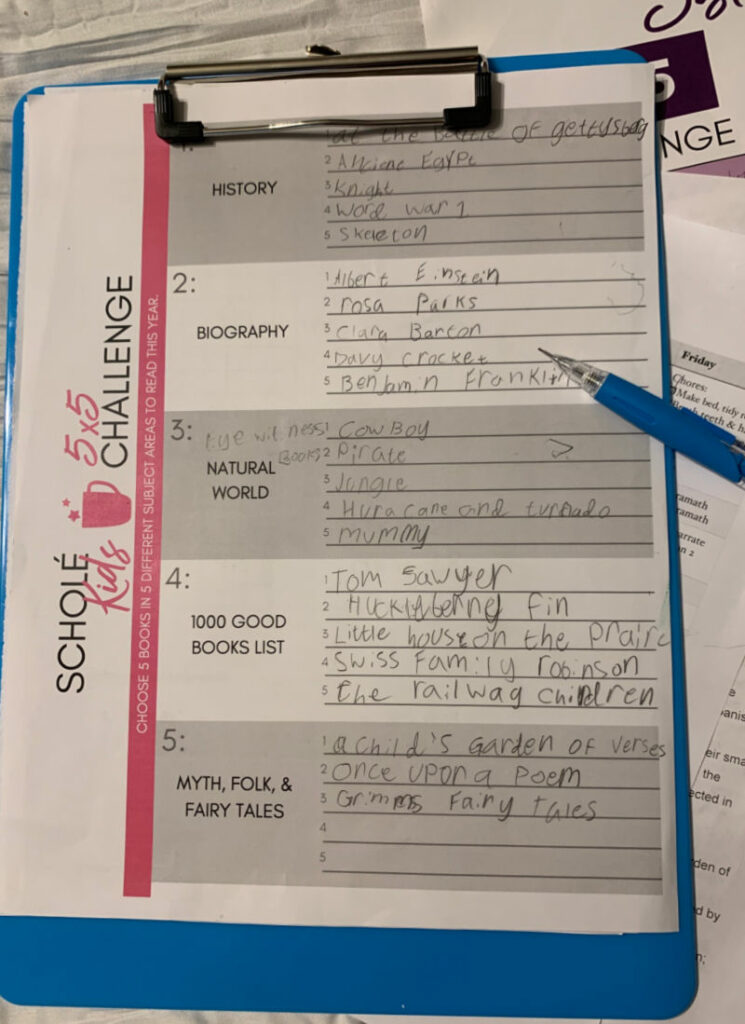 5
NGE
1.
HISTORY
1 at the Battle OF gettysburg
2
3 Knight
4 Word war 1
5 Skeleton
2:
BIOGRAPHY
1 Albert Einstein
2 rosa Parks
3 Clara Barton
4 Davy crocket
5 Benjamin Franklin
3:
NATURAL
WORLD
Eye witness
Books
1 COWBOY
2 Pirate
3 Jungle
4 Huracane and turnado
5 mummy
4:
1000 GOOD
BOOKS LIST
1 Tom Sawyer
2 Fin
3 Little house on the Prairе
4 Swiss Family robinson
5 the railway children
5:
MYTH, FOLK, &
FAIRY TALES
1 a child's Garden OF Verses
2 Once upon a Poem
3 Grimms Fairy tales
4
5
SCHOLÉ
Kids 5x5
CHALLENGE
CHOOSE 5 BOOKS IN 5 DIFFERENT SUBJECT AREAS TO READ THIS YEAR.
Friday
Chores:
Make bed, tidy
teeth &
ramath
ramath
arrate
on 2
e
anis
eir sma
the
ected in
den of
d by
n;